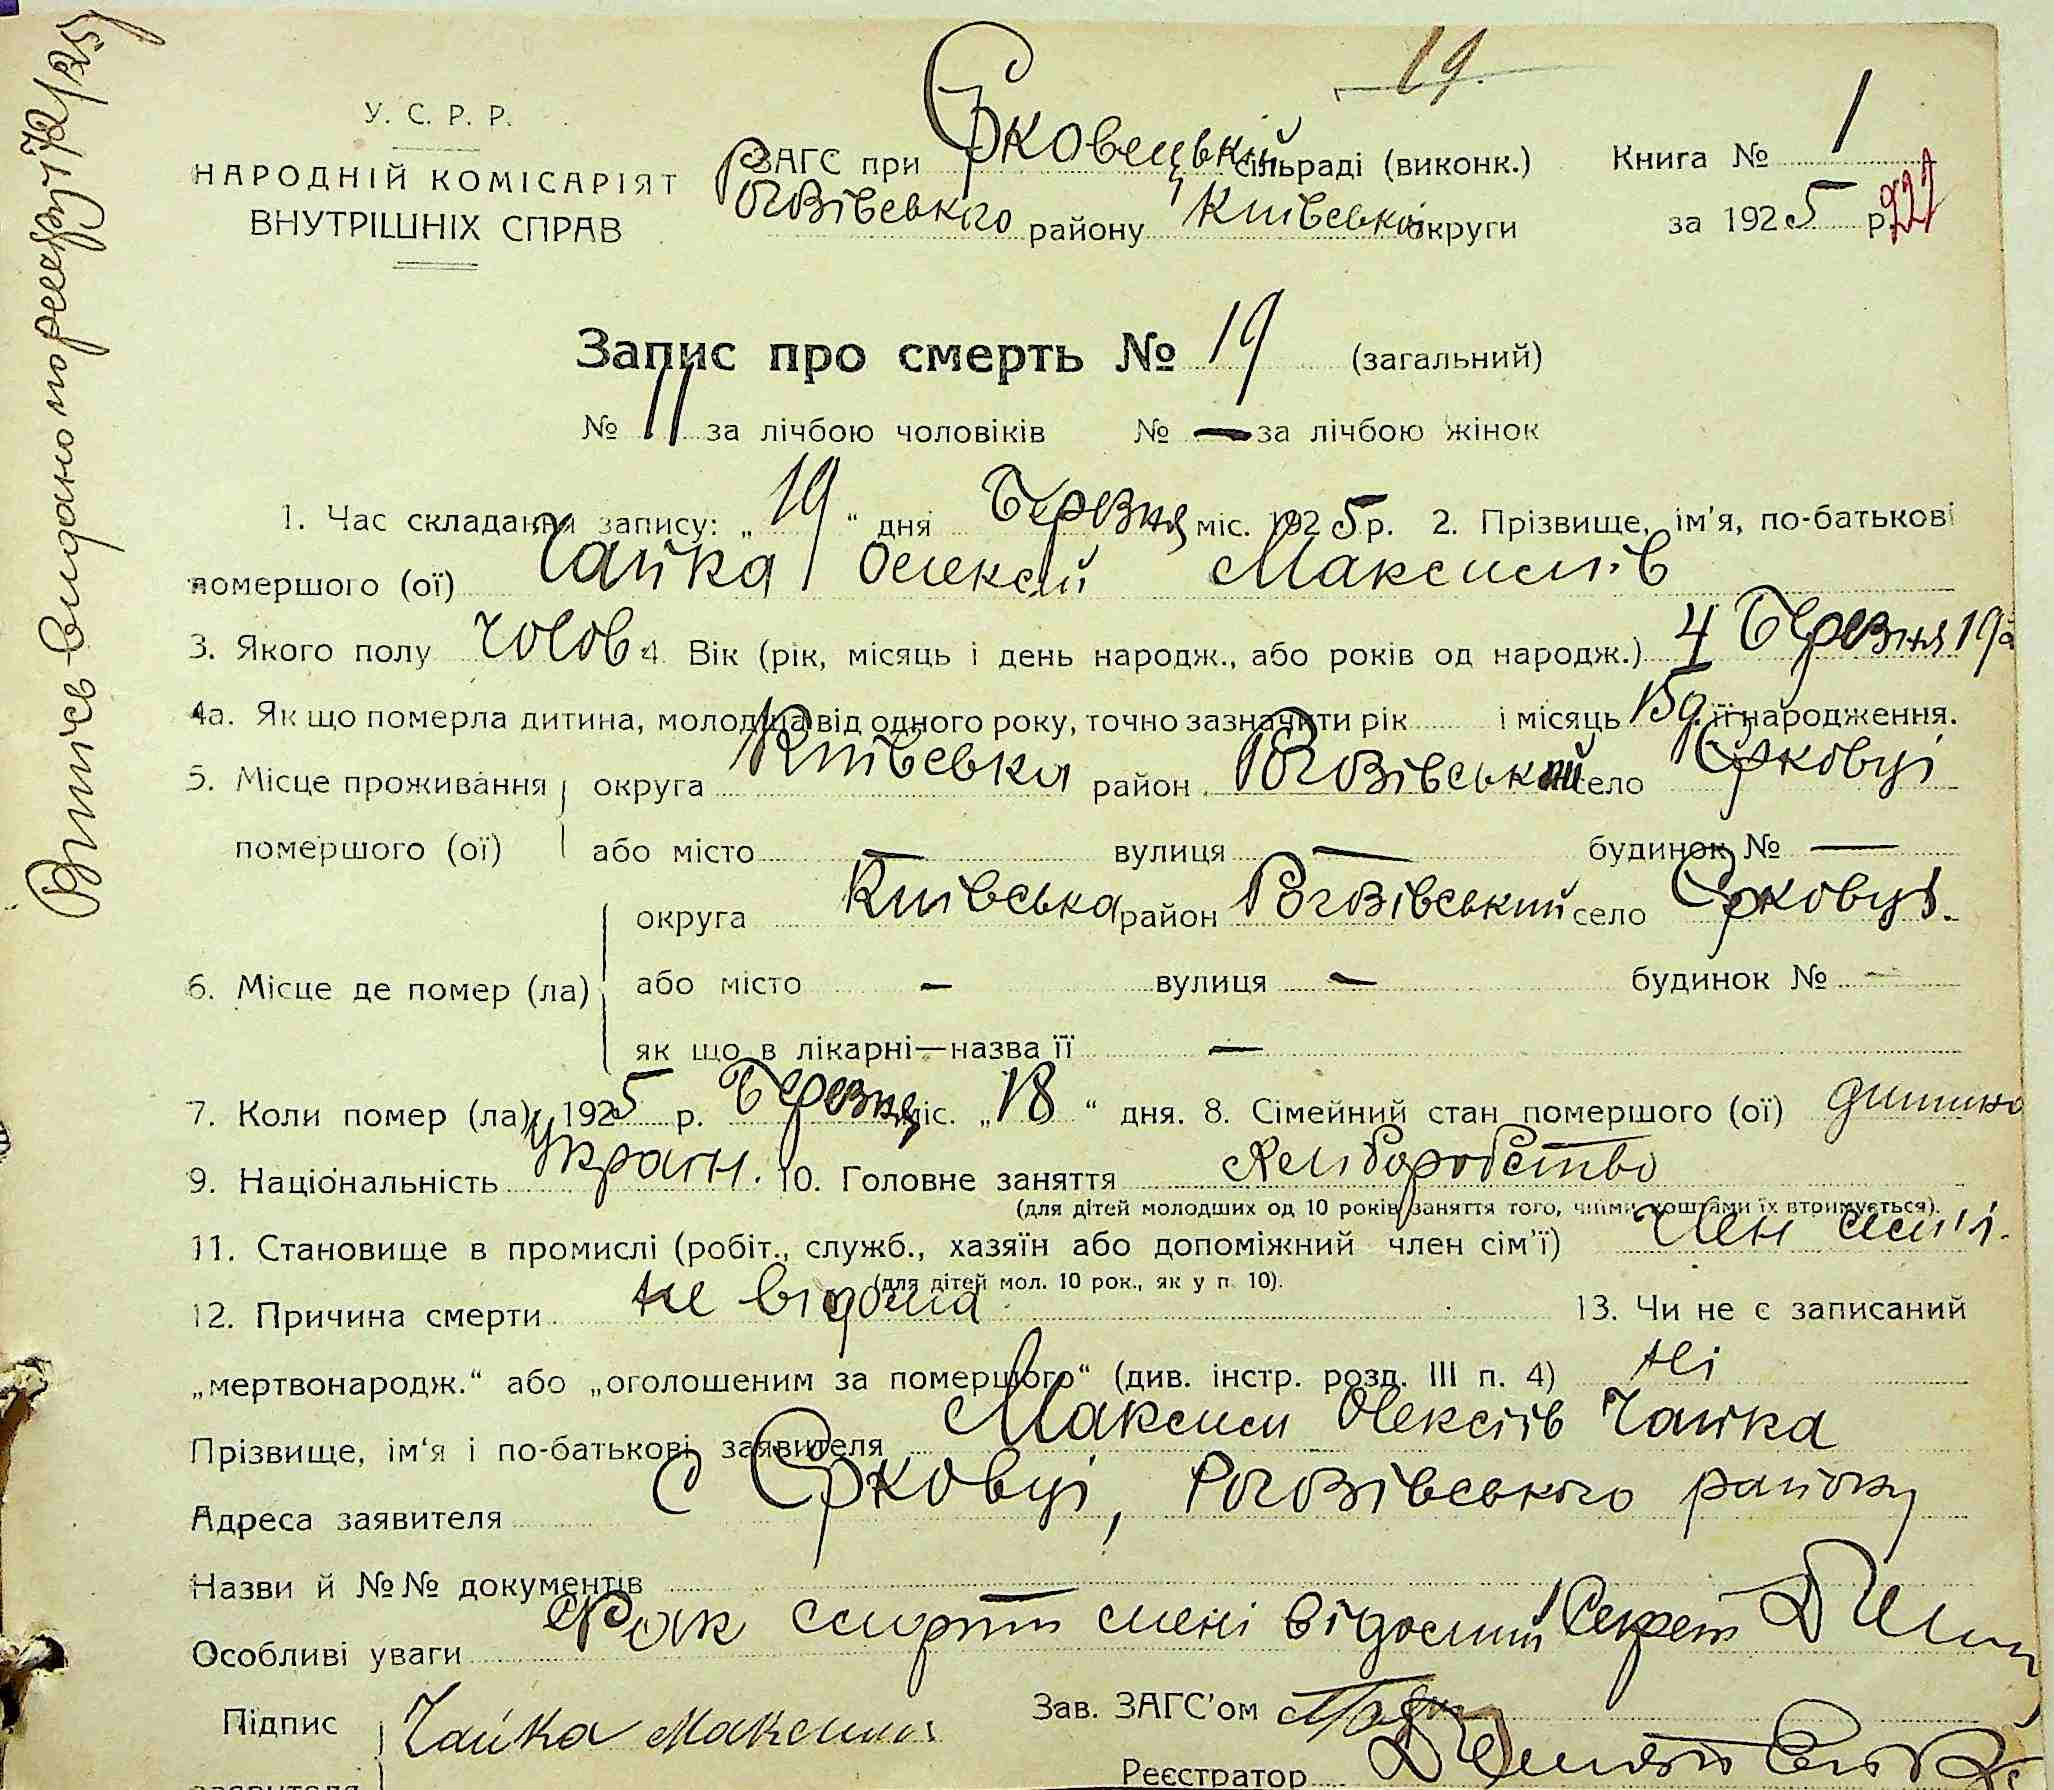 19.
У. С. Р. Р.
НАРОДНІЙ КОМІСАРІЯТ
ВНУТРІШНІХ СПРАВ
ЗАГС при Єрковецькій сільраді (виконк.)
Рогозівського району Київської округи
Книга № 1
за 1925 р.
Запис про смерть № 19 (загальний)
№ 11 за лічбою чоловіків № — за лічбою жінок
1. Час складання запису: „19“ дня Березня міс. 1925 р. 2. Прізвище, ім'я, по-батькові
помершого (ої) Чайка Олексій Максимів
3. Якого полу чолов. 4. Вік (рік, місяць і день народж., або років од народж.) 4 Березня 19
4а. Як що померла дитина, молодша від одного року, точно зазначити рік і місяць 15 д. її народження.
5. Місце проживання округа Київська район Рогозівський село Єрковці
помершого (ої) або місто — вулиця — будинок № —
округа Київська район Рогозівський село Єрковці.
6. Місце де помер (ла) або місто — вулиця — будинок № —
як що в лікарні—назва її —
7. Коли помер (ла) 1925 р. Березня міс. „18“ дня. 8. Сімейний стан помершого (ої) дитина
9. Національність Україн. 10. Головне заняття Хліборобство
(для дітей молодших од 10 років заняття того, чиїми коштами їх втримується).
11. Становище в промислі (робіт., служб., хазяїн або допоміжний член сім'ї) член сем'ї.
(для дітей мол. 10 рок., як у п. 10).
12. Причина смерти не відома 13. Чи не є записаний
„мертвонародж.“ або „оголошеним за померщого“ (див. інстр. розд. III п. 4) Ні
Прізвище, ім'я і по-батькові заявителя Максим Олексіїв Чайка
Адреса заявителя с Єрковці, Рогозівського району
Назви й №№ документів
Особливі уваги Фак смерти мені відомий Секрет
Підпис Чайка Максим
заявителя
Зав. ЗАГС'ом
Реєстратор
Витяг видано по реєстру 172/25